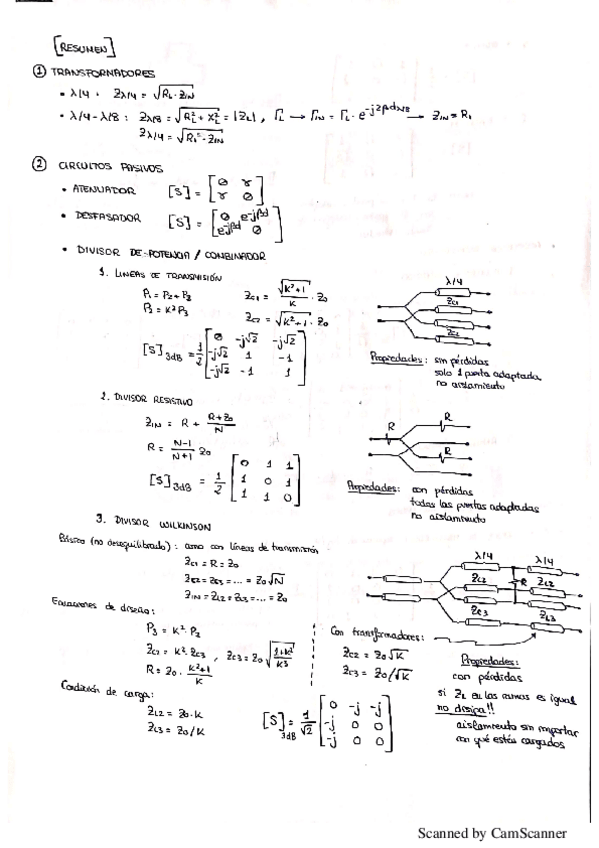 [RESUMEN]
① TRANSFORMADORES
• λ/4 : Zλ/4 = √(RL · ZIN)
• λ/4 - λ/8 : Zλ/8 = √(RL² + XL²) = |ZL| , ΓL → ΓIN = ΓL · e^(-j2βdλ/8) → ZIN = R1
Zλ/4 = √(R1 · ZIN)
② CIRCUITOS PASIVOS
• ATENUADOR [S] = [0 γ; γ 0]
• DESFASADOR [S] = [0 e^(-jβd); e^(-jβd) 0]
• DIVISOR DE POTENCIA / COMBINADOR
1. LINEAS DE TRANSMISIÓN
P1 = P2 + P3
P2 = K² P3
ZC1 = √(K²+1)/K · Z0
ZC2 = √(K²+1) · Z0
[S]3dB = 1/2 [0 -j√2 -j√2; -j√2 1 -1; -j√2 -1 1]
λ/4
ZC1
ZC2
Propiedades: sin pérdidas
solo 1 puerta adaptada
no aislamiento
2. DIVISOR RESISTIVO
ZIN = R + (R+Z0)/N
R = (N-1)/(N+1) Z0
[S]3dB = 1/2 [0 1 1; 1 0 1; 1 1 0]
R
R
R
Propiedades: con pérdidas
todas las puertas adaptadas
no aislamiento
3. DIVISOR WILKINSON
Básico (no desequilibrado): como con líneas de transmisión
ZC1 = R = Z0
ZC2 = ZC3 = ... = Z0√N
ZIN = ZL2 = ZL3 = ... = Z0
λ/4 λ/4
ZC2 R ZL2
ZC3 ZL3
Ecuaciones de diseño:
P3 = K² · P2
ZC2 = K² · ZC3 , ZC3 = Z0 √((1+K²)/K³)
R = Z0 · (K²+1)/K
Condición de carga:
ZL2 = Z0 · K
ZL3 = Z0 / K
Con transformadores:
ZC2 = Z0√K
ZC3 = Z0/√K
[S]3dB = 1/√2 [0 -j -j; -j 0 0; -j 0 0]
Propiedades:
con pérdidas
si ZL en las ramas es igual
no disipa!!
aislamiento sin importar
con qué estén cargados
Scanned by CamScanner